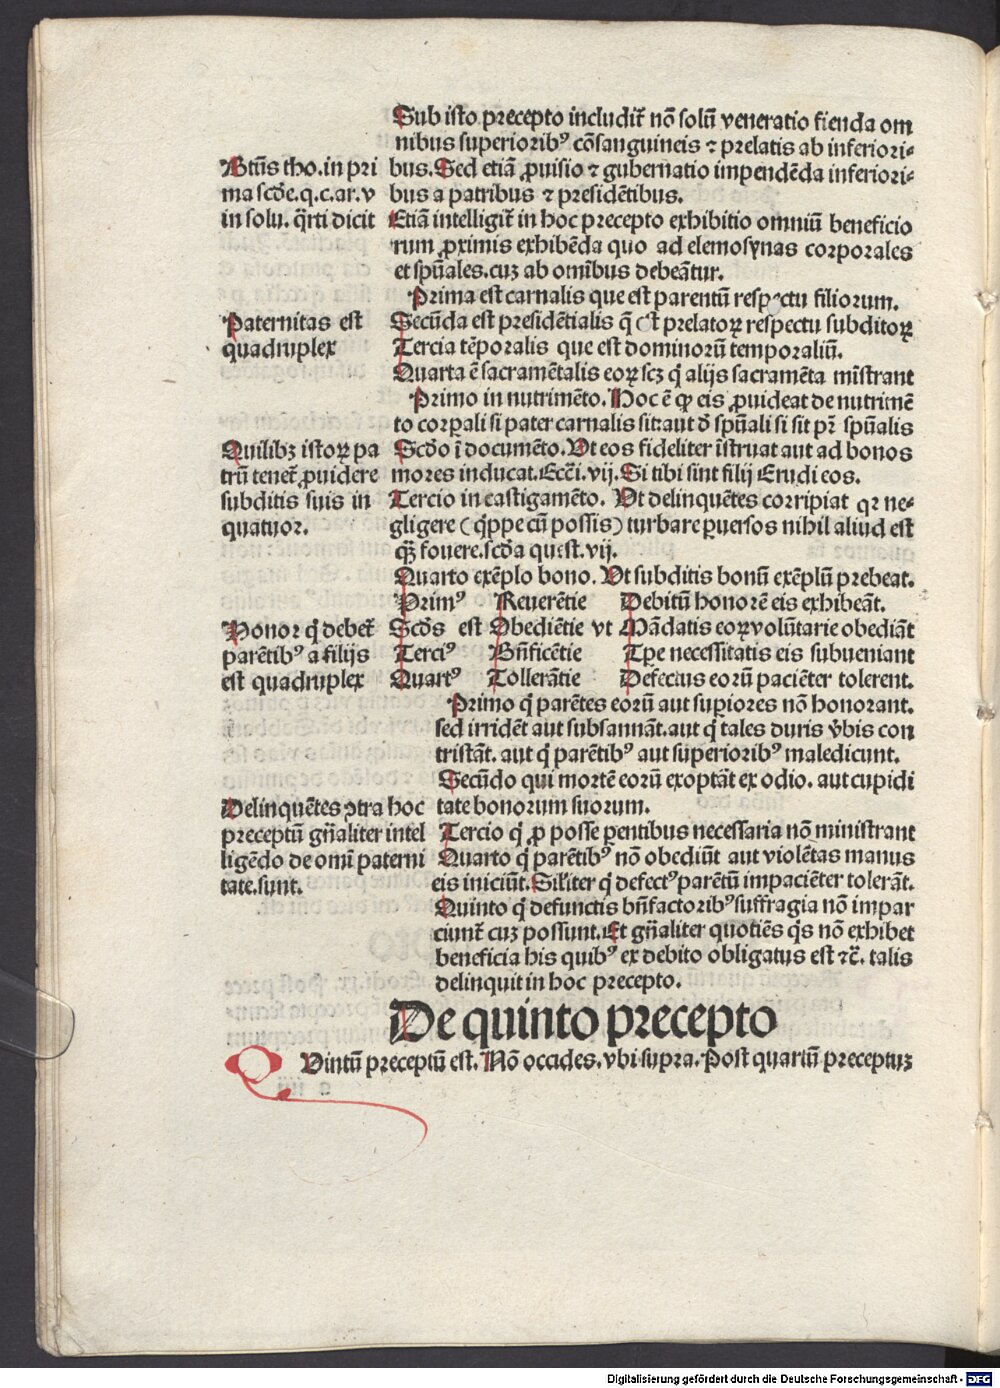 Sub isto precepto includit᷑ nō solū veneratio fienda om
nibus superioribꝰ cōsanguineis ⁊ prelatis ab inferiori⸗
bus. Sed etiā ꝓuisio ⁊ gubernatio impendēda inferiori⸗
bus a patribus ⁊ presidētibus.
Etiā intelligit᷑ in hoc precepto exhibitio omniū beneficio
rum ꝓximis exhibēda quo ad elemosynas corporales
et spūales. cuȝ ab omībus debeātur.
Btūs tho. in pri
ma scđe. q. c. ar. v
in solu. q̄rti dicit
Prima est carnalis que est parentū respectu filiorum.
Secūda est presidētialis q̄ est prelatoꝝ respectu subditoꝝ
Tercia tēporalis que est dominorū temporaliū.
Quarta ē sacramētalis eoꝝ scȝ q̇ alijs sacramēta mīstrant
Paternitas est
quadruplex
Primo in nutrimēto. Hoc ē ꝙ eis ꝓuideat de nutrimē
to corꝑali si pater carnalis sit: aut đ spūali si sit pr̄ spūalis
Scđo ī documēto. Vt eos fideliter īstruat aut ad bonos
mores inducat. Ecc̄i. vij. Si tibi sint filij Erudi eos.
Tercio in castigamēto. Vt delinquētes corripiat qꝛ ne⸗
gligere (q̇ppe cū possis) turbare ꝑuersos nihil aliud est
qȝ̄ fouere. scđa quest. vij.
Quarto exēplo bono. Vt subditis bonū exēplū prebeat.
Quilibȝ istoꝝ pa
trū tenet᷑ ꝓuidere
subditis suis in
quatuor.
Primꝰ Reuerētie Debitū honorē eis exhibeāt.
Scđs est Obediētie vt Mādatis eoꝝ volūtarie obediāt
Terciꝰ Bn̄ficētie Tꝑe necessitatis eis subueniant
Quartꝰ Tollerātie Defectus eorū paciēter tolerent.
Honor q̇ debet᷑
parētibꝰ a filijs
est quadruplex
Primo q̇ parētes eorū aut suꝑiores nō honorant.
sed irridēt aut subsannāt. aut q̇ tales duris v̄bis con
tristāt. aut q̇ parētibꝰ aut superioribꝰ maledicunt.
Secūdo qui mortē eorū exoptāt ex odio. aut cupidi
tate bonorum suorum.
Tercio q̇ ꝓ posse ꝑentibus necessaria nō ministrant
Quarto q̇ parētibꝰ nō obediūt aut violētas manus
eis iniciūt. Sil̄iter q̇ defectꝰ parētū impaciēter tolerāt.
Quinto q̇ defunctis bn̄factoribꝰ suffragia nō impar
ciunt᷑ cuȝ possunt. Et gn̄aliter quotiēs q̇s nō exhibet
beneficia his quibꝰ ex debito obligatus est ⁊c̄. talis
delinquit in hoc precepto.
Delinquētes ↄtra hoc
preceptū gn̄aliter intel
ligēdo de omī paterni
tate. sunt.
De quinto precepto
Quintū preceptū est. Nō occides. vbi supra. Post quartū preceptuȝ
Digitalisierung gefördert durch die Deutsche Forschungsgemeinschaft - DFG